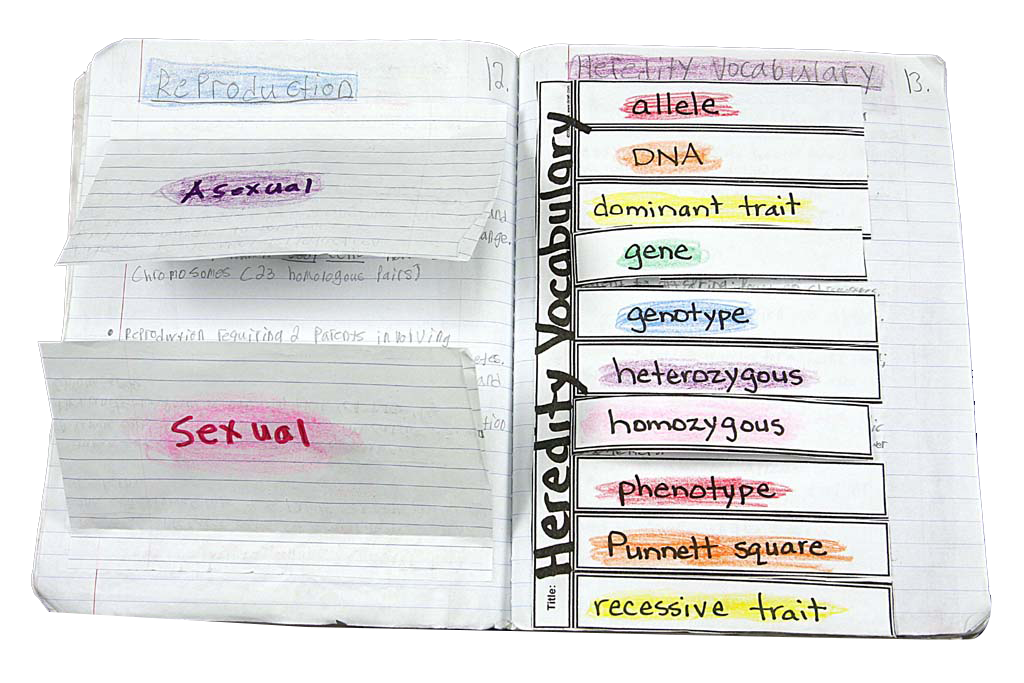 Reproduction
12.
Asexual
and
ange.
Chromosomes (23 homologous Pairs)
• Reproduction requiring 2 Parents involving
etes.
and
tion
Sexual
Heredity Vocabulary
13.
Title: Heredity Vocabulary
allele
DNA
dominant trait
gene
genotype
heterozygous
homozygous
phenotype
Punnett square
recessive trait